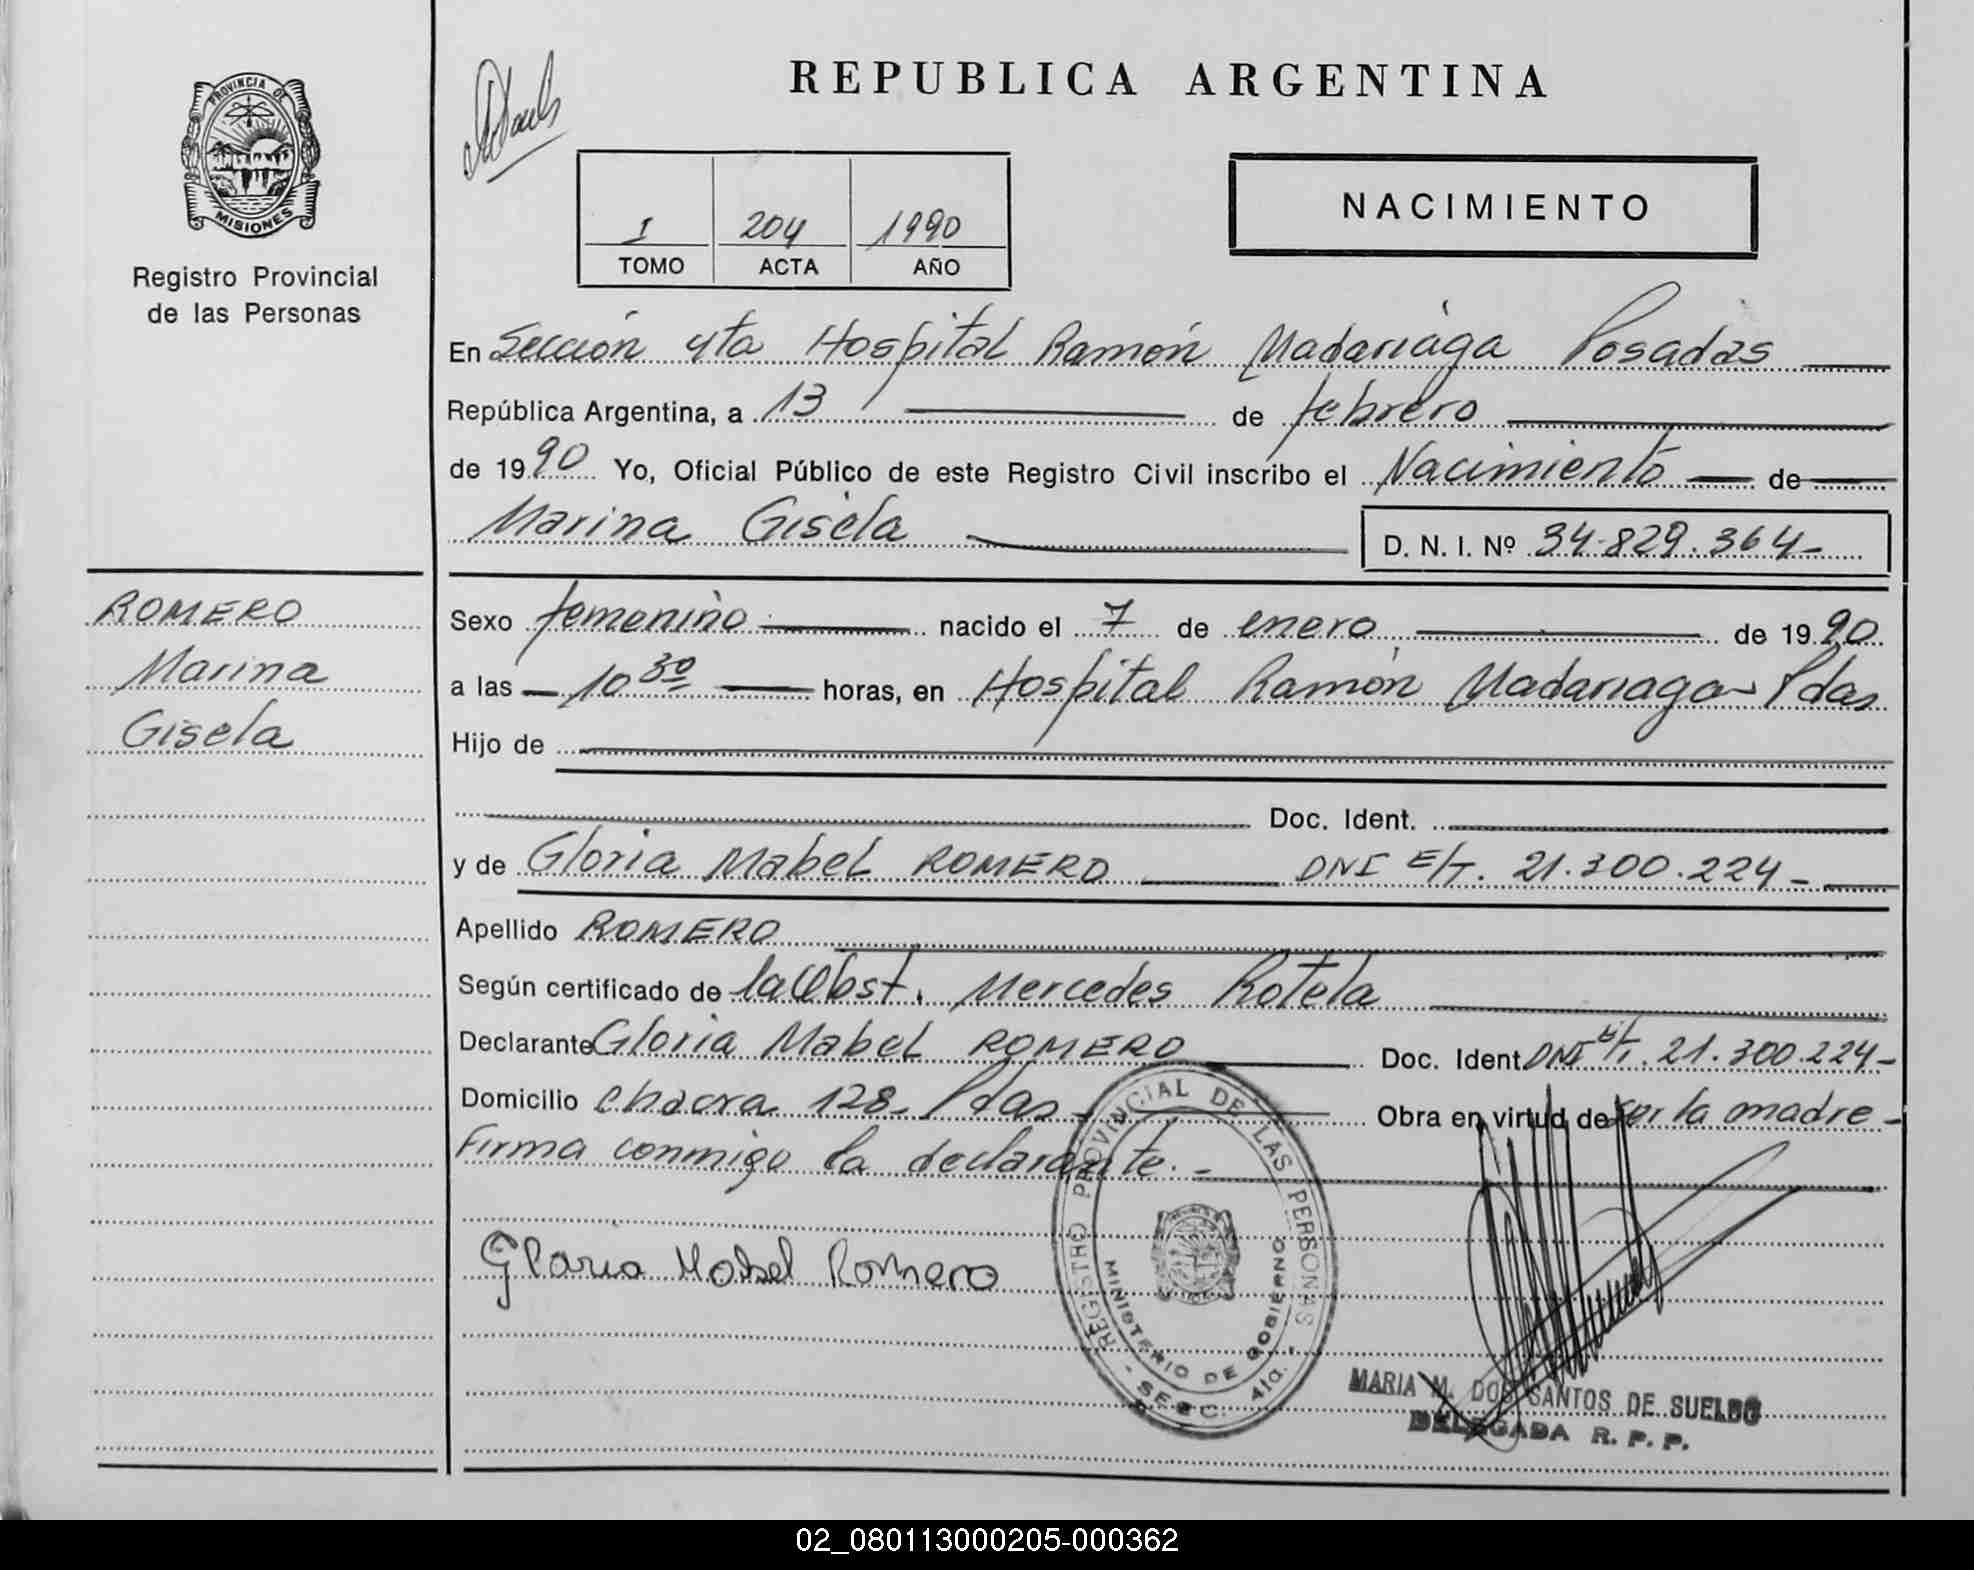 REPUBLICA ARGENTINA
PROVINCIA DE
MISIONES
Registro Provincial
de las Personas
I 204 1990
TOMO ACTA AÑO
NACIMIENTO
En Sección 4ta Hospital Ramón Madariaga Posadas
República Argentina, a 13 de febrero
de 1990 Yo, Oficial Público de este Registro Civil inscribo el Nacimiento de
Marina Gisela D. N. I. Nº 34.829.364-
ROMERO
Marina
Gisela
Sexo femenino nacido el 7 de enero de 1990
a las 10 30 horas, en Hospital Ramón Madariaga - Pdas
Hijo de
Doc. Ident.
y de Gloria Mabel ROMERO DNI E/T. 21.300.224-
Apellido ROMERO
Según certificado de la Obst. Mercedes Rotela
Declarante Gloria Mabel ROMERO Doc. Ident. DNI E/T. 21.300.224-
Domicilio chacra 128- Pdas - Obra en virtud de ser la madre-
Firma conmigo la declarante.-
Gloria Mabel Romero
REGISTRO PROVINCIAL DE LAS PERSONAS
MINISTERIO DE GOBIERNO
- SECC. 4ta. -
MARIA M. DOS SANTOS DE SUELDO
DELEGADA R. P. P.
02_080113000205-000362